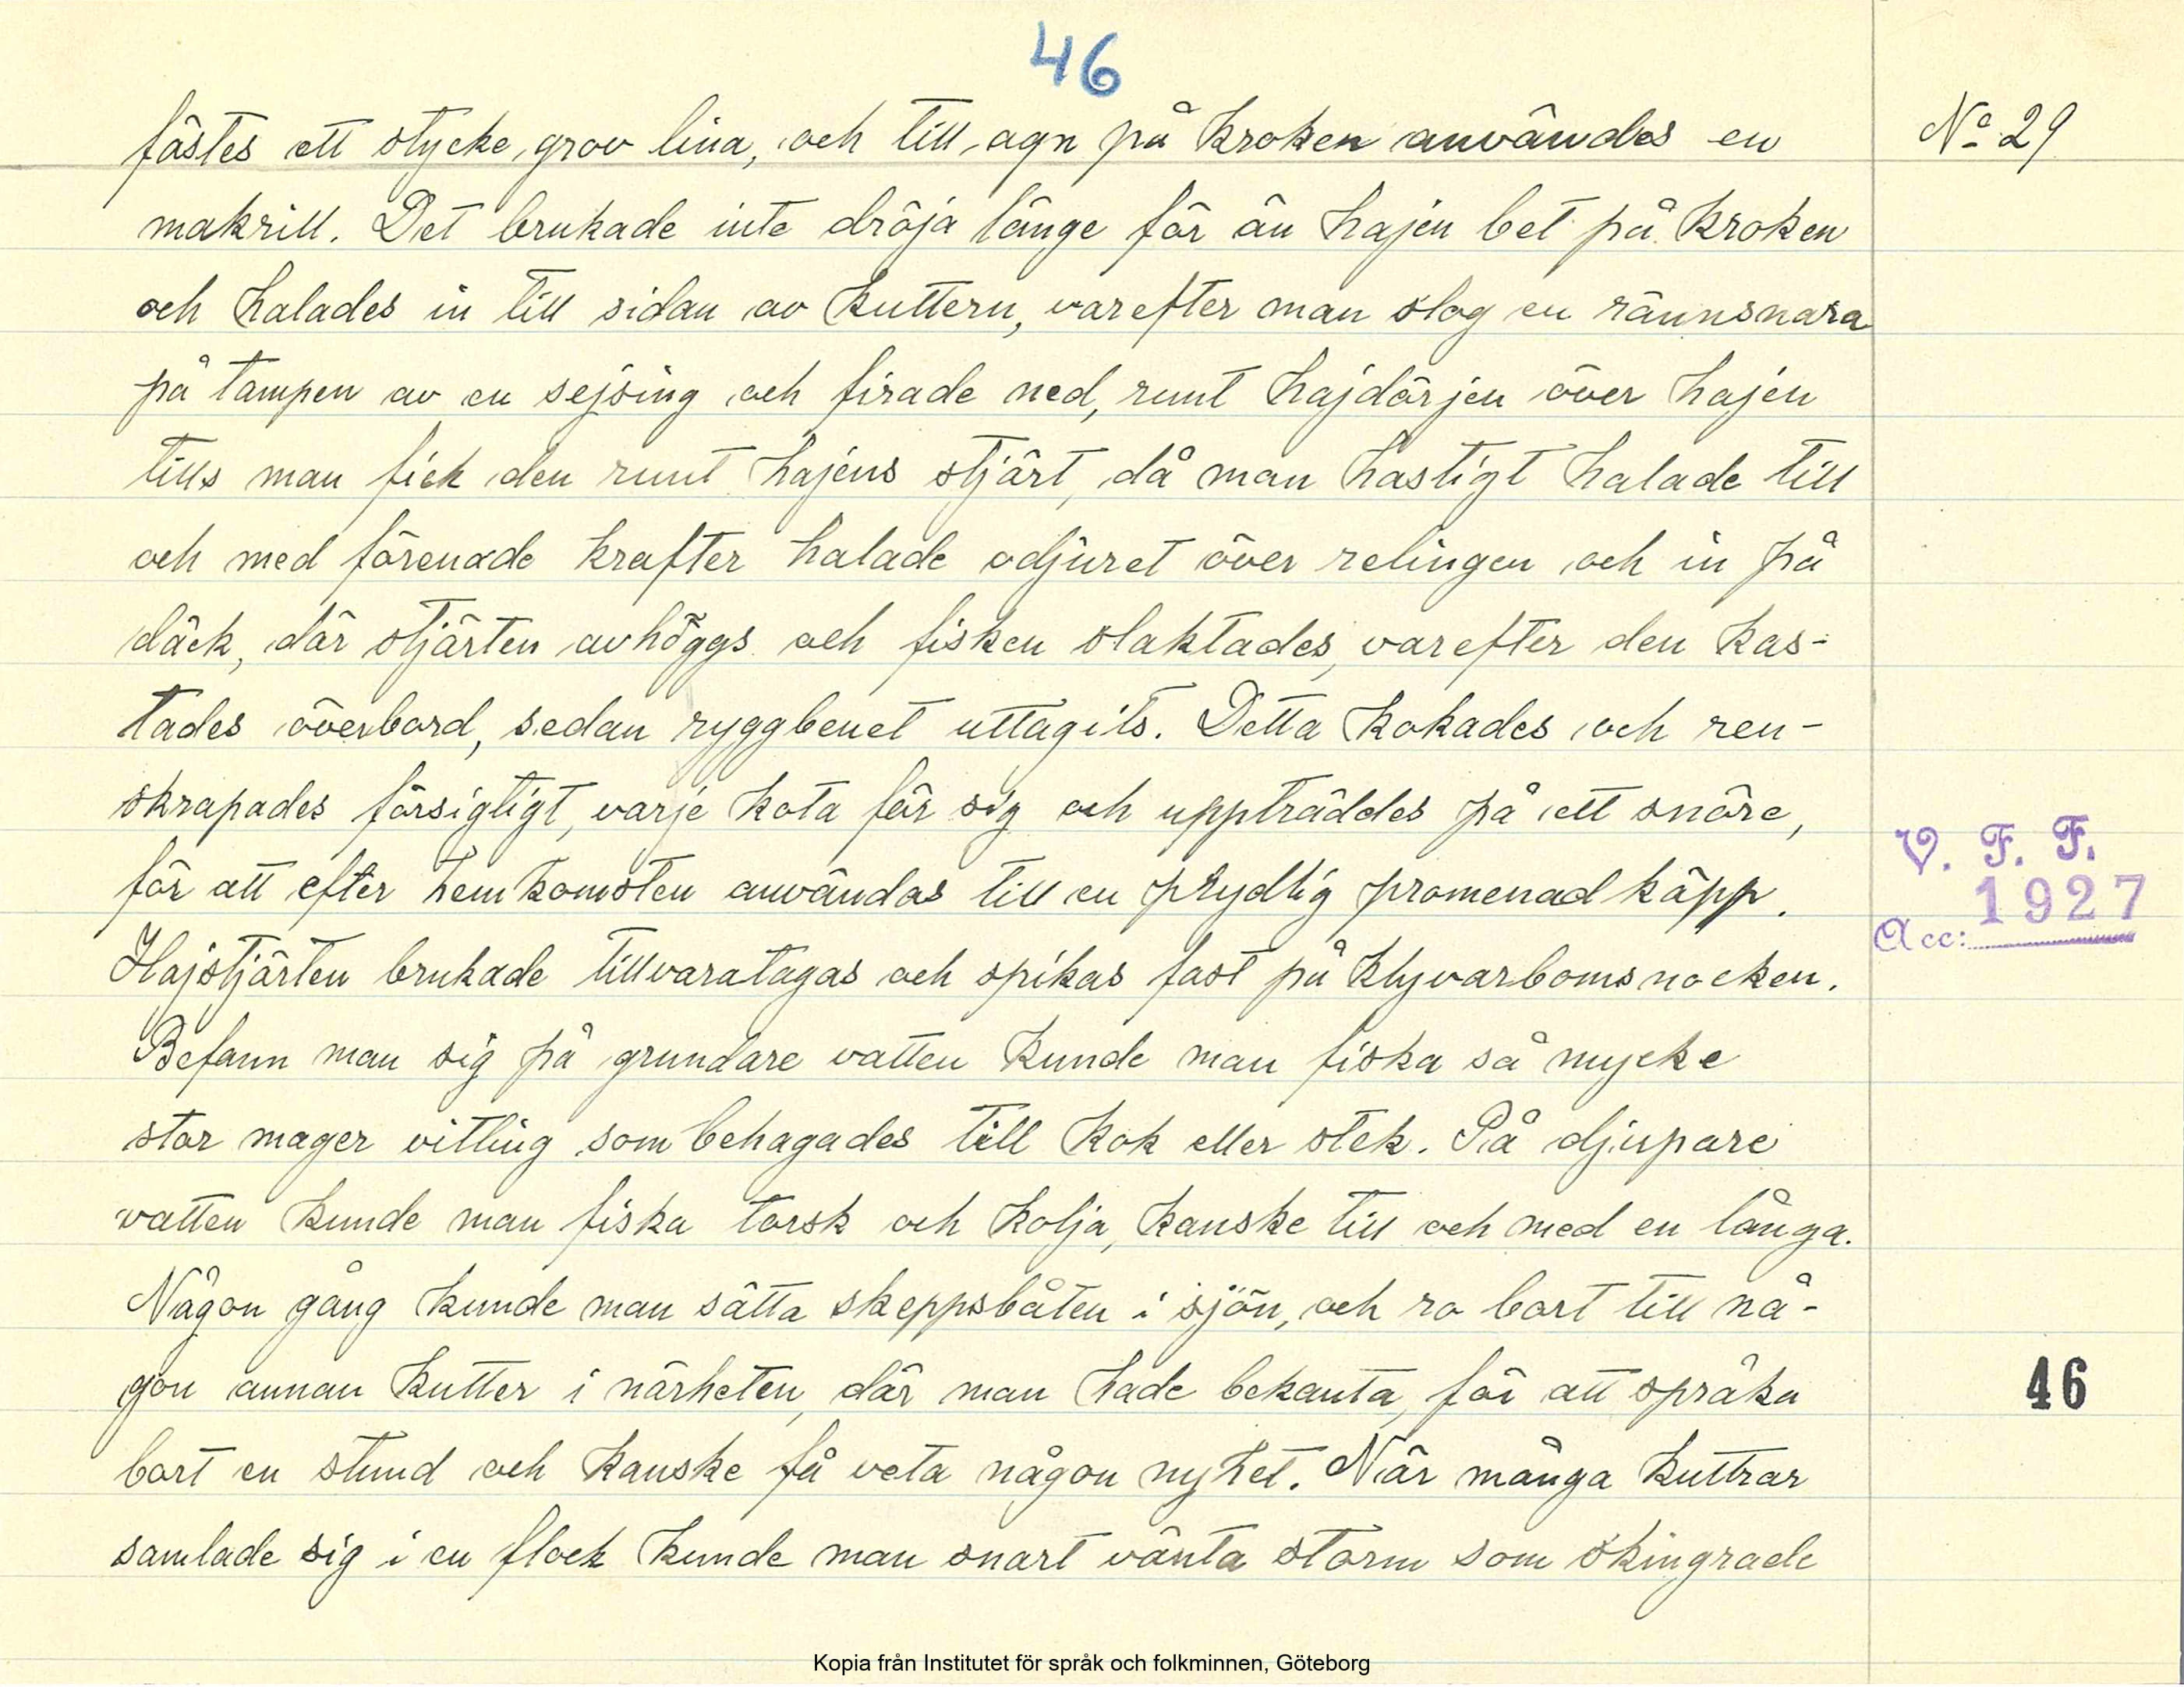 46
fästes ett stycke grov lina, och till agn på kroken användes en
No 29
makrill. Det brukade inte dröja länge för än hajen bet på kroken
och halades in till sidan av kuttern, varefter man slog en rännsnara
på tampen av en sejsing och firade ned, runt hajdörjen över hajen
tills man fick den runt hajens stjärt, då man hastigt halade till
och med förenade krafter halade odjuret över relingen och in på
däck, där stjärten avhöggs och fisken slaktades, varefter den kas-
tades överbord, sedan ryggbenet uttagits. Detta kokades och ren-
skrapades försigtigt, varje kota för sig och uppträddes på ett snöre,
för att efter hemkomsten användas till en prydlig promenadkäpp.
V. F. F.
1927
Acc:
Hajstjärten brukade tillvaratagas och spikas fast på klyvarbomsnocken.
Befann man sig på grundare vatten kunde man fiska så mycke
stor mager vitling som behagades till kok eller stek. På djupare
vatten kunde man fiska torsk och kolja, kanske till och med en långa.
Någon gång kunde man sätta skeppsbåten i sjön, och ro bort till nå-
gon annan kutter i närheten, där man hade bekanta, för att språka
46
bort en stund och kanske få veta någon nyhet. När många kuttrar
samlade sig i en flock kunde man snart vänta storm som skingrade
Kopia från Institutet för språk och folkminnen, Göteborg